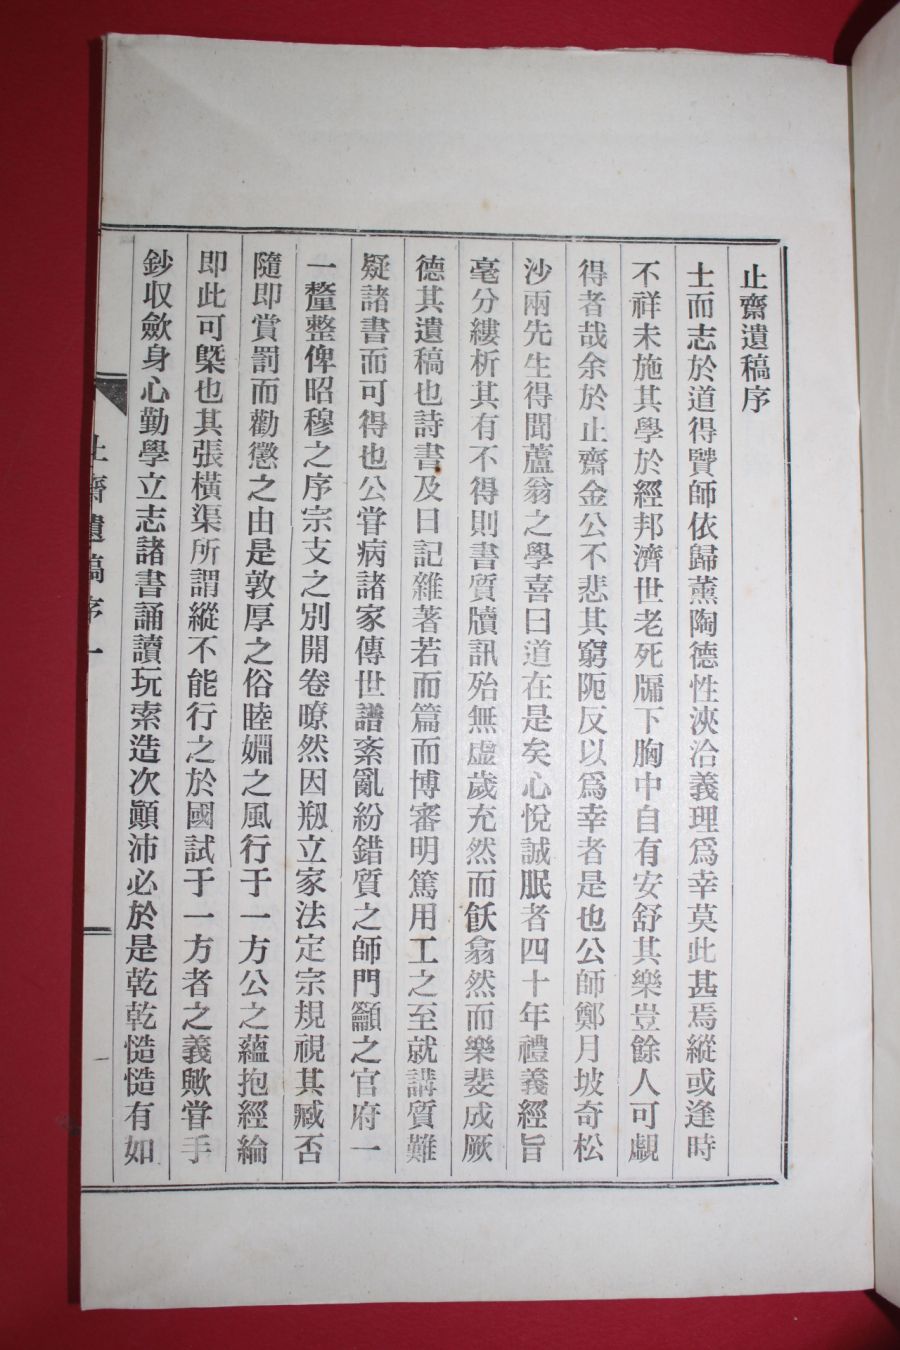 止齋遺稿序
士而志於道得賢師依歸薰陶德性浹洽義理爲幸莫此甚焉縱或逢時
不祥未施其學於經邦濟世老死牖下胸中自有安舒其樂豈餘人可覰
得者哉余於止齋金公不悲其窮阨反以爲幸者是也公師鄭月坡奇松
沙兩先生得聞蘆翁之學喜曰道在是矣心悅誠服者四十年禮義經旨
毫分縷析其有不得則書質牘訊殆無虛歲充然而飫翕然而樂斐成厥
德其遺稿也詩書及日記雜著若而篇而博審明篤用工之至就講質難
疑諸書而可得也公甞病諸家傳世譜紊亂紛錯質之師門籲之官府一
一釐整俾昭穆之序宗支之別開卷暸然因刱立家法定宗規視其臧否
隨即賞罰而勸懲之由是敦厚之俗睦婣之風行于一方公之蘊抱經綸
即此可槩也其張橫渠所謂縱不能行之於國試于一方者之義歟甞手
鈔収歛身心勤學立志諸書誦讀玩索造次顚沛必於是乾乾慥慥有如
止齋遺稿序 一